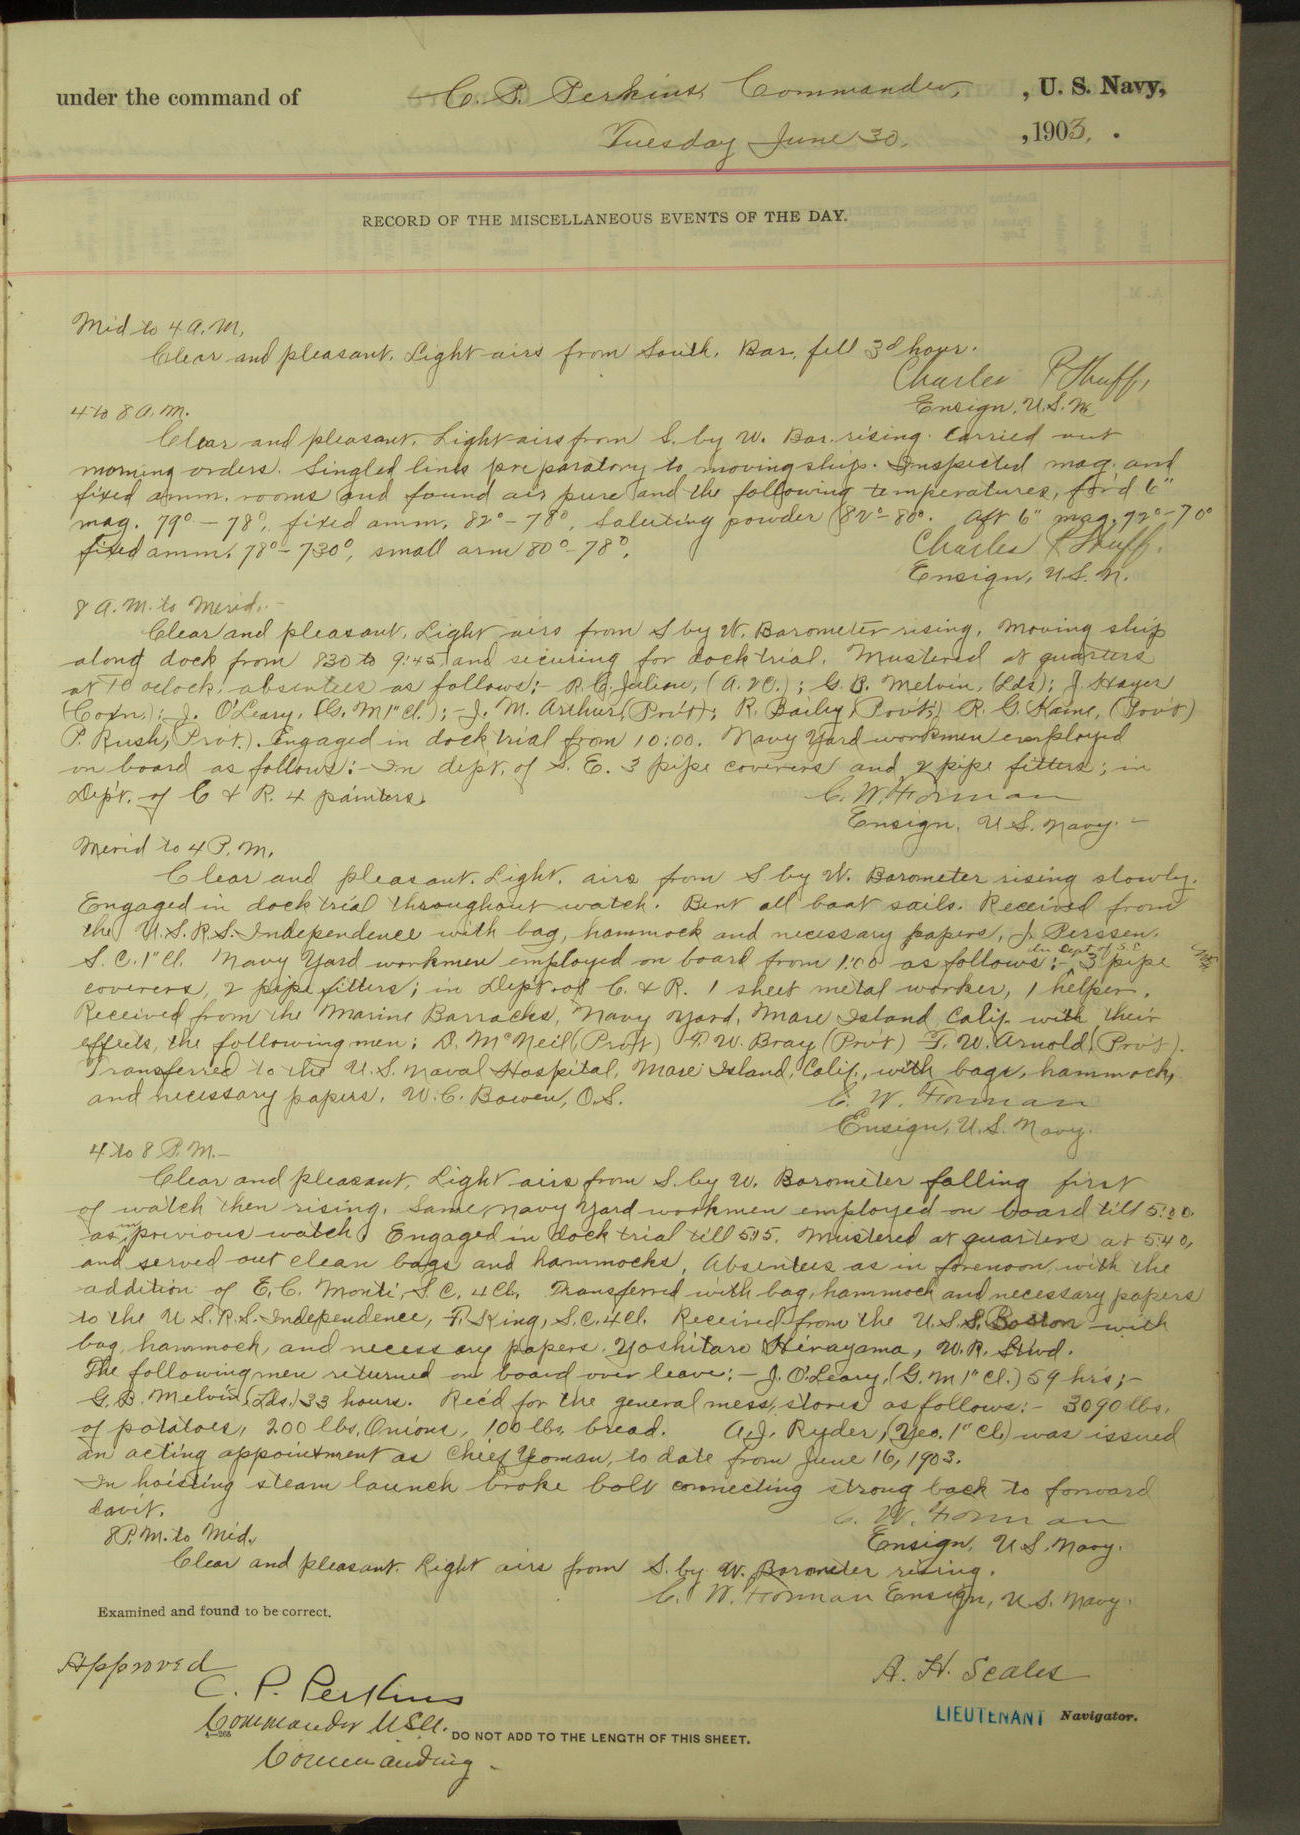 under the command of C. P. Perkins, Commander, , U. S. Navy,
Tuesday June 30, , 1903.
RECORD OF THE MISCELLANEOUS EVENTS OF THE DAY.
Mid to 4 A.M.
Clear and pleasant. Light airs from South. Bar. fell 3d hour.
Charles P. Huff,
Ensign, U.S.N.
4 to 8 A.M.
Clear and pleasant. Light airs from S. by W. Bar. rising. Carried out
morning orders. Singled lines preparatory to moving ship. Inspected mag. and
fixed amm. rooms and found air pure and the following temperatures, for'd 6"
mag. 79° – 78°, fixed amm. 82° – 78°, Saluting powder 82° – 80°. Aft 6" mag. 72° – 70°
fixed amm. 78° – 730°, small arm 80° – 78°.
Charles P. Huff.
Ensign, U.S.N.
8 A.M. to Merid. –
Clear and pleasant. Light airs from S by W. Barometer rising. Moving ship
along dock from 830 to 9:45 and securing for dock trial. Mustered at quarters
at 10 oclock; absentees as follows:– R. C. Julien, ; G. B. Melvin, (Lds); J. Hayer
(Coxn.); J. O'Leary, (G. M 1" Cl.);– J. M. Arthur, (Pro't); R. Bailey, (Prov't;) R. G. Kane, (Prov't)
P. Rush, (Prvt.). Engaged in dock trial from 10:00. Navy Yard workmen employed
on board as follows:– In dept. of S. E. 3 pipe coverers and 2 pipe fitters; in
Dep't. of C & R. 4 painters.
C. W. Forman
Ensign, U. S. Navy. –
Merid to 4 P.M.
Clear and pleasant. Light. airs from S by W. Barometer rising slowly.
Engaged in dock trial throughout watch. Bent all boat sails. Received from
the U.S.R.S. Independence with bag, hammock and necessary papers, J. Perssen,
S. C. 1" Cl. Navy Yard workmen employed on board from 1:00 as follows:– in Dept of S. E. 3 pipe
coverers, 2 pipe fitters; in Dep't. of C. & R. 1 sheet metal worker, 1 helper.
Received from the Marine Barracks, Navy Yard, Mare Island Calif. with their
effects, the following men: D. McNeil (Prvt) F. W. Bray (Prvt) T. W. Arnold, (Prvt).
Transferred to the U.S. Naval Hospital, Mare Island, Calif., with bags, hammock,
and necessary papers, W. C. Bowen, O.S.
C. W. Forman
Ensign, U.S. Navy.
4 to 8 P.M. –
Clear and pleasant, Light airs from S. by W. Barometer falling first
of watch then rising. Same Navy Yard workmen employed on board till 5:00
as in previous watch. Engaged in dock trial till 5:15. Mustered at quarters at 5:40,
and served out clean bags and hammocks, Absentees as in forenoon, with the
addition of E. C. Monti, S. C. 4 Cl. Transferred with bag, hammock and necessary papers
to the U.S.R.S. Independence, F. King, S.C. 4Cl. Received from the U.S.S. Boston with
bag, hammock, and necessary papers, Yoshitaro Hirayama, W. R. Stwd.
The following men returned on board over leave:– J. O'Leary, (G. M 1" Cl.) 59 hrs;–
G. B. Melvin (Lds.) 33 hours. Rec'd for the general mess, stores as follows:– 3090 lbs.
of potatoes, 200 lbs. Onions, 100 lbs. bread. A. J. Ryder, (Yeo. 1" Cl.) was issued
an acting appointment as Chief Yeoman, to date from June 16, 1903.
In hoisting steam launch broke bolt connecting strong back to forward
davit.
C. W. Forman
Ensign, U. S. Navy.
8 P.M. to Mid.
Clear and pleasant. Light airs from S. by W. Barometer rising.
C. W. Forman Ensign, U.S. Navy.
Examined and found to be correct.
Approved
C. P. Perkins
Commander USN.
Commanding.
A. H. Scales
LIEUTENANT Navigator.
DO NOT ADD TO THE LENGTH OF THIS SHEET.